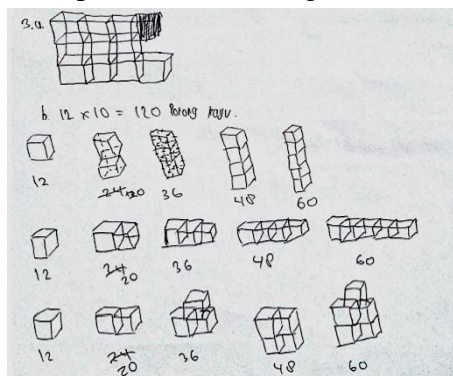 3.a.
b. 12 x 10 = 120 Potong kayu.
12 24 20 36 48 60
12 24 20 36 48 60
12 24 20 36 48 60